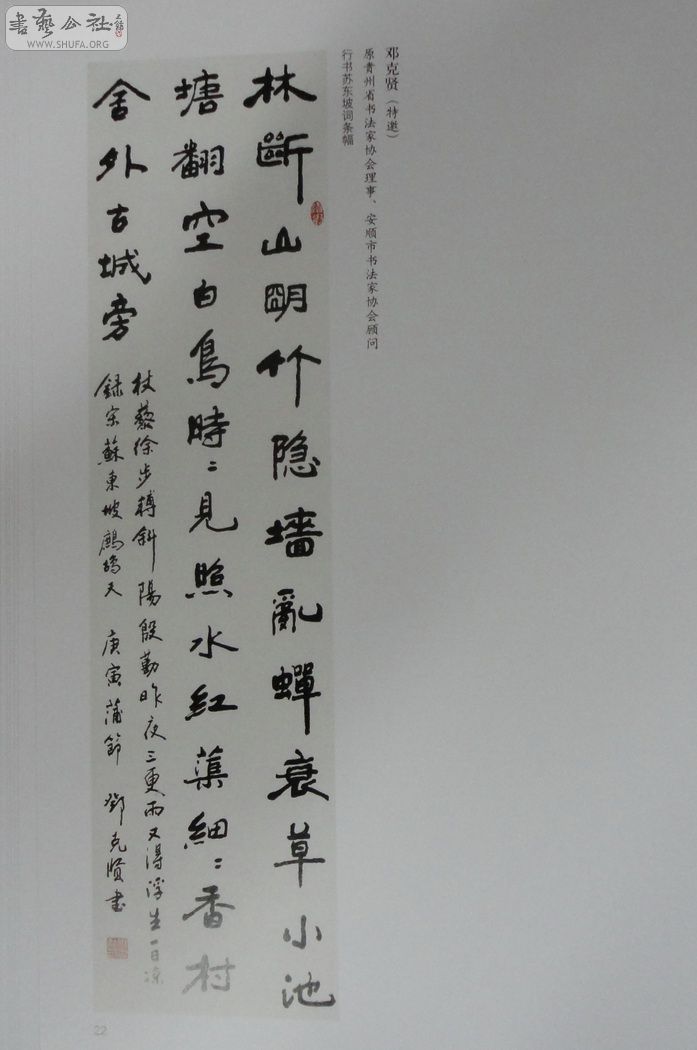 書藝公社
WWW.SHUFA.ORG
邓克贤（特邀）
原贵州省书法家协会理事、安顺市书法家协会顾问
行书苏东坡词条幅
林斷山朙竹隐墻亂蟬衰草小池
塘翻空白鳥時〻見照水紅蕖細〻香村
舍外古城旁
杖藜徐步轉斜陽殷勤昨夜三更雨又得浮生一日凉
録宋蘇東坡鷓鴣天 庚寅蒲節 鄧克賢書
22